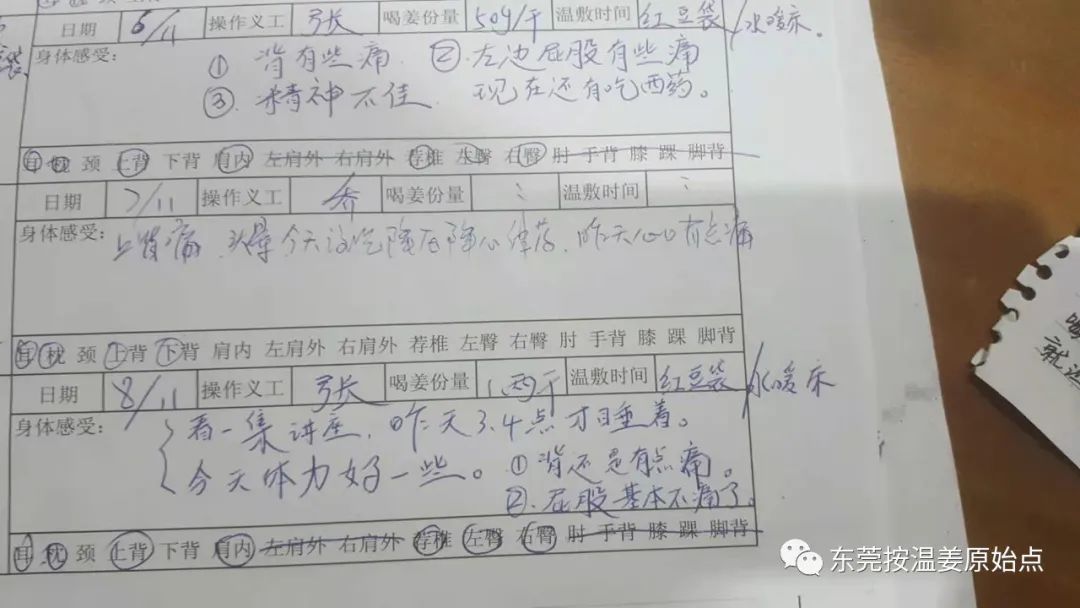 日期 6/11 操作义工 张 喝姜份量 50g/干 温敷时间 红豆袋/水暖床。
身体感受:
① 背有些痛. ②左边屁股有些痛
③. 精神不佳. 现在还有吃西药。
耳 枕 颈 上背 下背 肩内 左肩外 右肩外 荐椎 左臀 右臀 肘 手背 膝 踝 脚背
日期 7/11 操作义工 乔 喝姜份量 温敷时间
身体感受: 上背痛, 头晕 今天没吃降压降心律药, 昨天心口有点痛
耳 枕 颈 上背 下背 肩内 左肩外 右肩外 荐椎 左臀 右臀 肘 手背 膝 踝 脚背
日期 8/11 操作义工 张 喝姜份量 1两干 温敷时间 红豆袋/水暖床
身体感受: 看一集讲座, 昨天3.4点才睡着。
今天体力好一些。 ①背还是有点痛。
②. 屁股基本不痛了。
耳 枕 颈 上背 下背 肩内 左肩外 右肩外 荐椎 左臀 右臀 肘 手背 膝 踝 脚背
东莞按温姜原始点